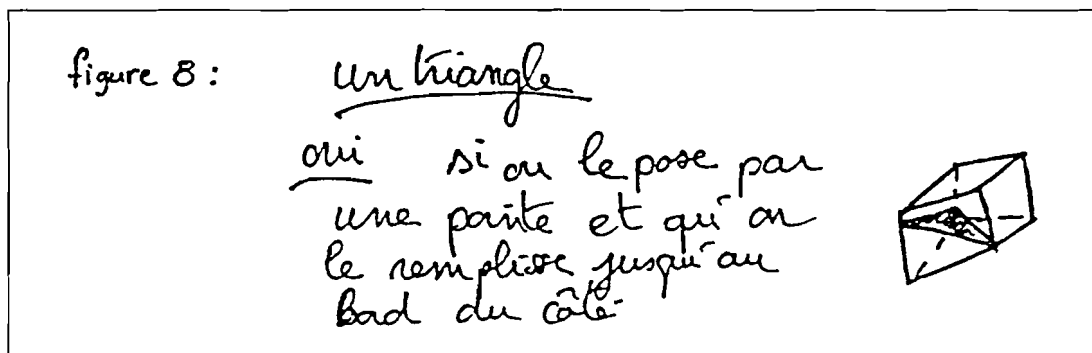 figure 8 : un triangle
oui si on le pose par
une pointe et qu'on
le remplisse jusqu'au
bord du côté